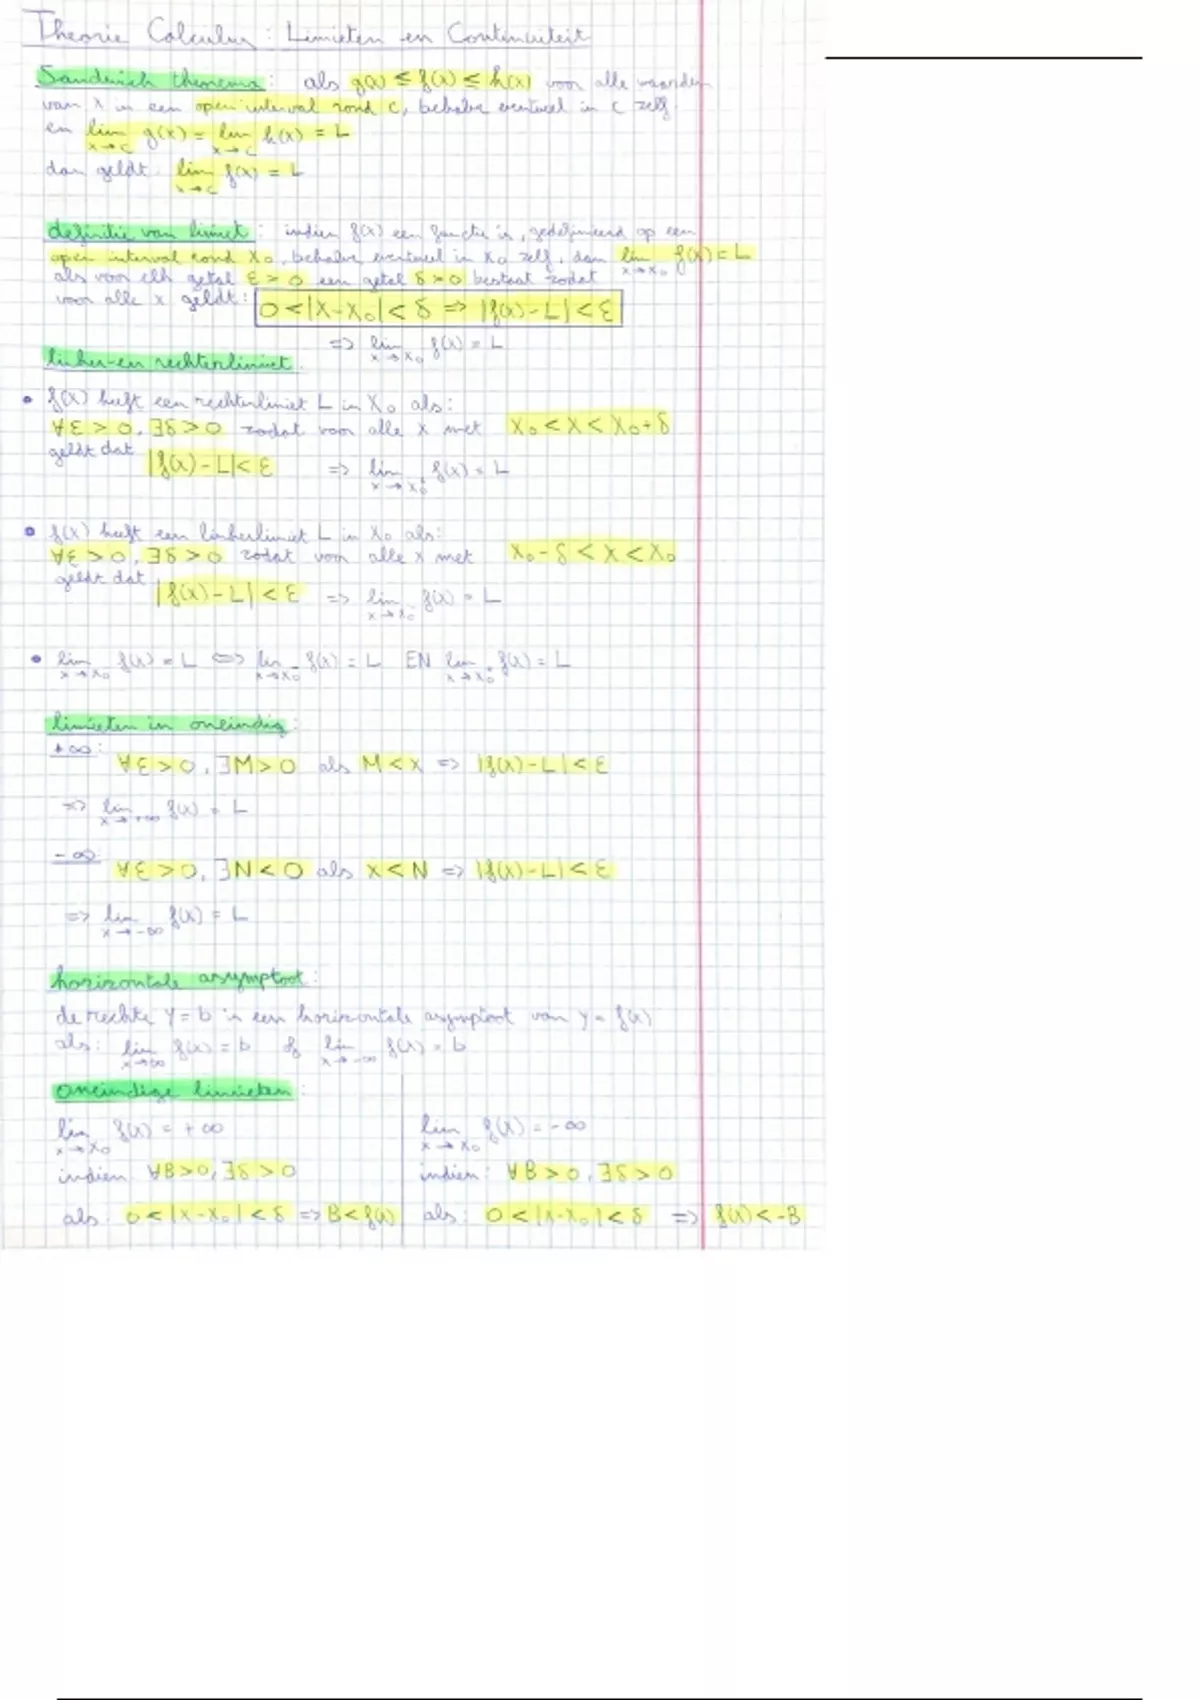 Theorie Calculus: Limieten en Continuiteit
Sandwich theorema: als g(x) ≤ f(x) ≤ h(x) voor alle waarden
van x in een open interval rond c, behalve eventueel in c zelf
en lim x→c g(x) = lim x→c h(x) = L
dan geldt lim x→c f(x) = L
definitie van limiet: indien f(x) een functie is, gedefinieerd op een
open interval rond x₀, behalve eventueel in x₀ zelf, dan lim x→x₀ f(x) = L
als voor elk getal ε > 0 een getal δ > 0 bestaat zodat
voor alle x geldt: 0 < |x-x₀| < δ => |f(x)-L| < ε
=> lim x→x₀ f(x) = L
linker-en rechterlimiet
• f(x) heeft een rechterlimiet L in x₀ als:
∀ε > 0, ∃δ > 0 zodat voor alle x met x₀ < x < x₀+δ
geldt dat |f(x)-L| < ε => lim x→x₀⁺ f(x) = L
• f(x) heeft een linkerlimiet L in x₀ als:
∀ε > 0, ∃δ > 0 zodat voor alle x met x₀-δ < x < x₀
geldt dat |f(x)-L| < ε => lim x→x₀⁻ f(x) = L
• lim x→x₀ f(x) = L <=> lim x→x₀⁻ f(x) = L EN lim x→x₀⁺ f(x) = L
limieten in oneindig:
+∞:
∀ε > 0, ∃M > 0 als M < x => |f(x)-L| < ε
=> lim x→+∞ f(x) = L
-∞:
∀ε > 0, ∃N < 0 als x < N => |f(x)-L| < ε
=> lim x→-∞ f(x) = L
horizontale asymptoot:
de rechte y = b is een horizontale asymptoot van y = f(x)
als: lim x→∞ f(x) = b of lim x→-∞ f(x) = b
oneindige limieten:
lim x→x₀ f(x) = +∞
indien: ∀B > 0, ∃δ > 0
als: 0 < |x-x₀| < δ => B < f(x)
lim x→x₀ f(x) = -∞
indien: ∀B > 0, ∃δ > 0
als: 0 < |x-x₀| < δ => f(x) < -B